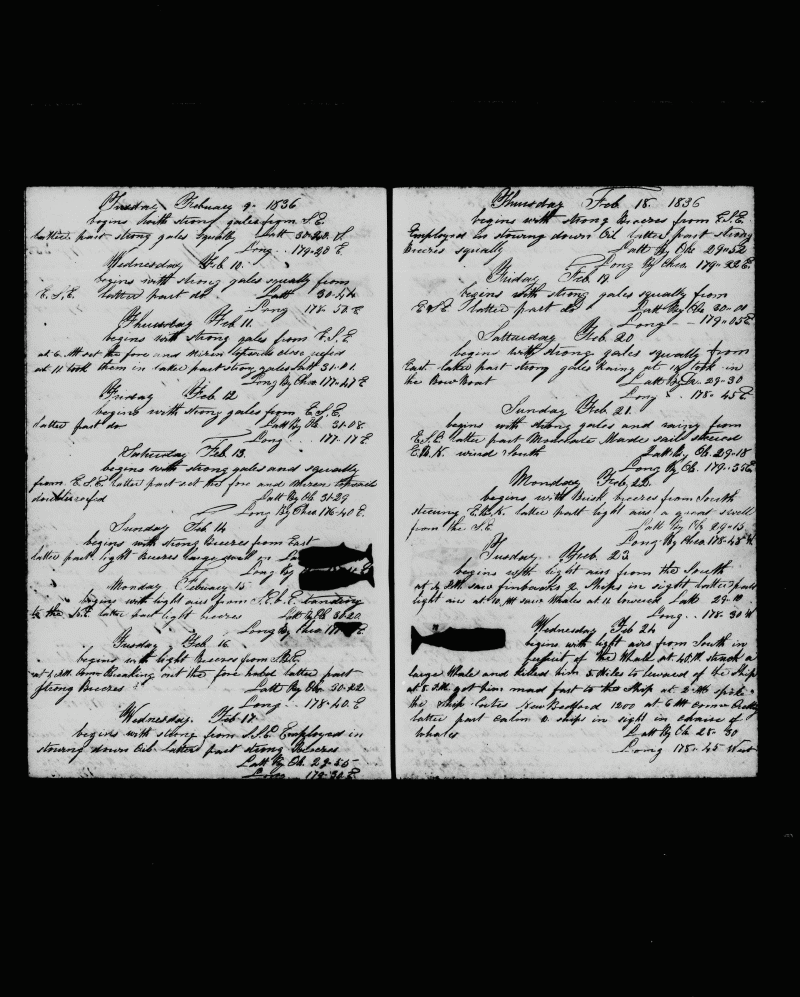 Tusday February 9 - 1836
begins with strong gales from S.E.
latter part strong gales squally Latt 30-40 S
Long 179-20 E
Wednesday Feb 10.
begins with strong gales squally from
E.S.E. latter part do Latt 30-44
Long 178-50 E
Thursday Feb 11.
begins with strong gales from E.S.E
at 6 set the fore and Mizen topsails close reefed
at 11 took them in latter part strong gales Latt 31-01
Long By Chro 177-47 E
Friday Feb 12
begins with strong gales from E.S.E.
latter part do Latt By Ob 31-08
Long 177-17 E
Saturday Feb 13.
begins with strong gales and squally
from E.S.E. latter part set the fore and Mizen topsails
double reefed Latt By Ob 31-29
Long By Chro 176-40 E.
Sunday Feb 14
begins with strong Breezes from East
latter part light Breezes large swell
Long By
Monday February 15
begins with light airs from
to the latter part light breezes Latt By Ob 31-20
Long By Chro E.
Tusday Feb 16
begins with light Breezes from
at out the fore latter part
strong Breezes Latt By Ob 30-22
Long 178-40. E
Wednesday. Feb 17
begins with strong from Employed in
stouring down Oil latter part strong Breezes
Latt By Ob. 29-55
Long 179-30 E
Thursday Feb 18. 1836
begins with strong Breezes from E.S.E.
Employed in stouring down Oil latter part strong
Breezes squally Latt By Obs 29-52
Long By Chro 179-22 E.
Friday Feb 19
begins with strong gales squally from
E.S.E. latter part do Latt By Ob 30-00
Long 179-05 E
Saturday Feb. 20
begins with strong gales squally from
East latter part strong gales Raing at 11 took in
the Bow Boat Latt By 29-30
Long 178-45 E
Sunday Feb 21.
begins with strong gales and raing from
E.S.E. latter part Moderate Made sail steered
wind South Latt By Ob. 29-18
Long By Ob. 179-35 E
Monday Feb, 22
begins with Brisk breezes from South
steering latter part light airs a great swell
from the S.E. Latt By Ob 29-15
Long By Chro 178-48 W
Tusday Feb. 23
begins with light airs from the South
at 4 saw finbacks 2 Ships in sight latter part
light airs at 10 saw Whales at 11 lowerd Latt 29-10
Long 178-30 W
Wednesday Feb 24
begins with light airs from South in
persuit of the Whale at struck a
large Whale and killed him 5 Miles to leward of the Ship
at 5 got him mad fast to the Ship at 2 spoke
the Ship New Bedford 1200 at 6
latter part Calm ships in sight in
whales Latt By Ob 28-30
Long 178-45 West